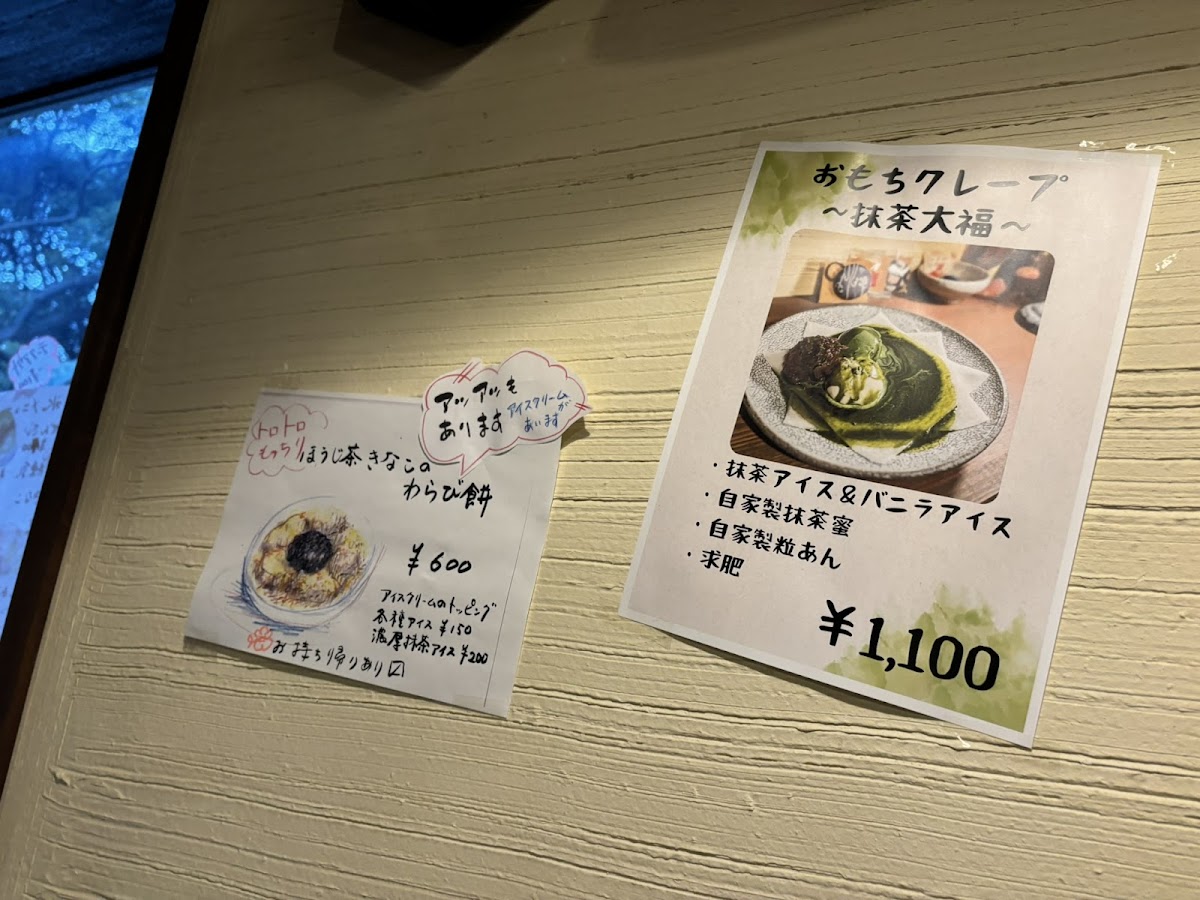 トロトロ
もっちり
ほうじ茶きなこの
わらび餅
アツアツも
あります
アイスクリームが
あいます
¥600
アイスクリームのトッピング
各種アイス ¥150
濃厚抹茶アイス ¥200
お持ち帰りあり〼
おもちクレープ
~抹茶大福~
・抹茶アイス&バニラアイス
・自家製抹茶蜜
・自家製粒あん
・求肥
¥1,100